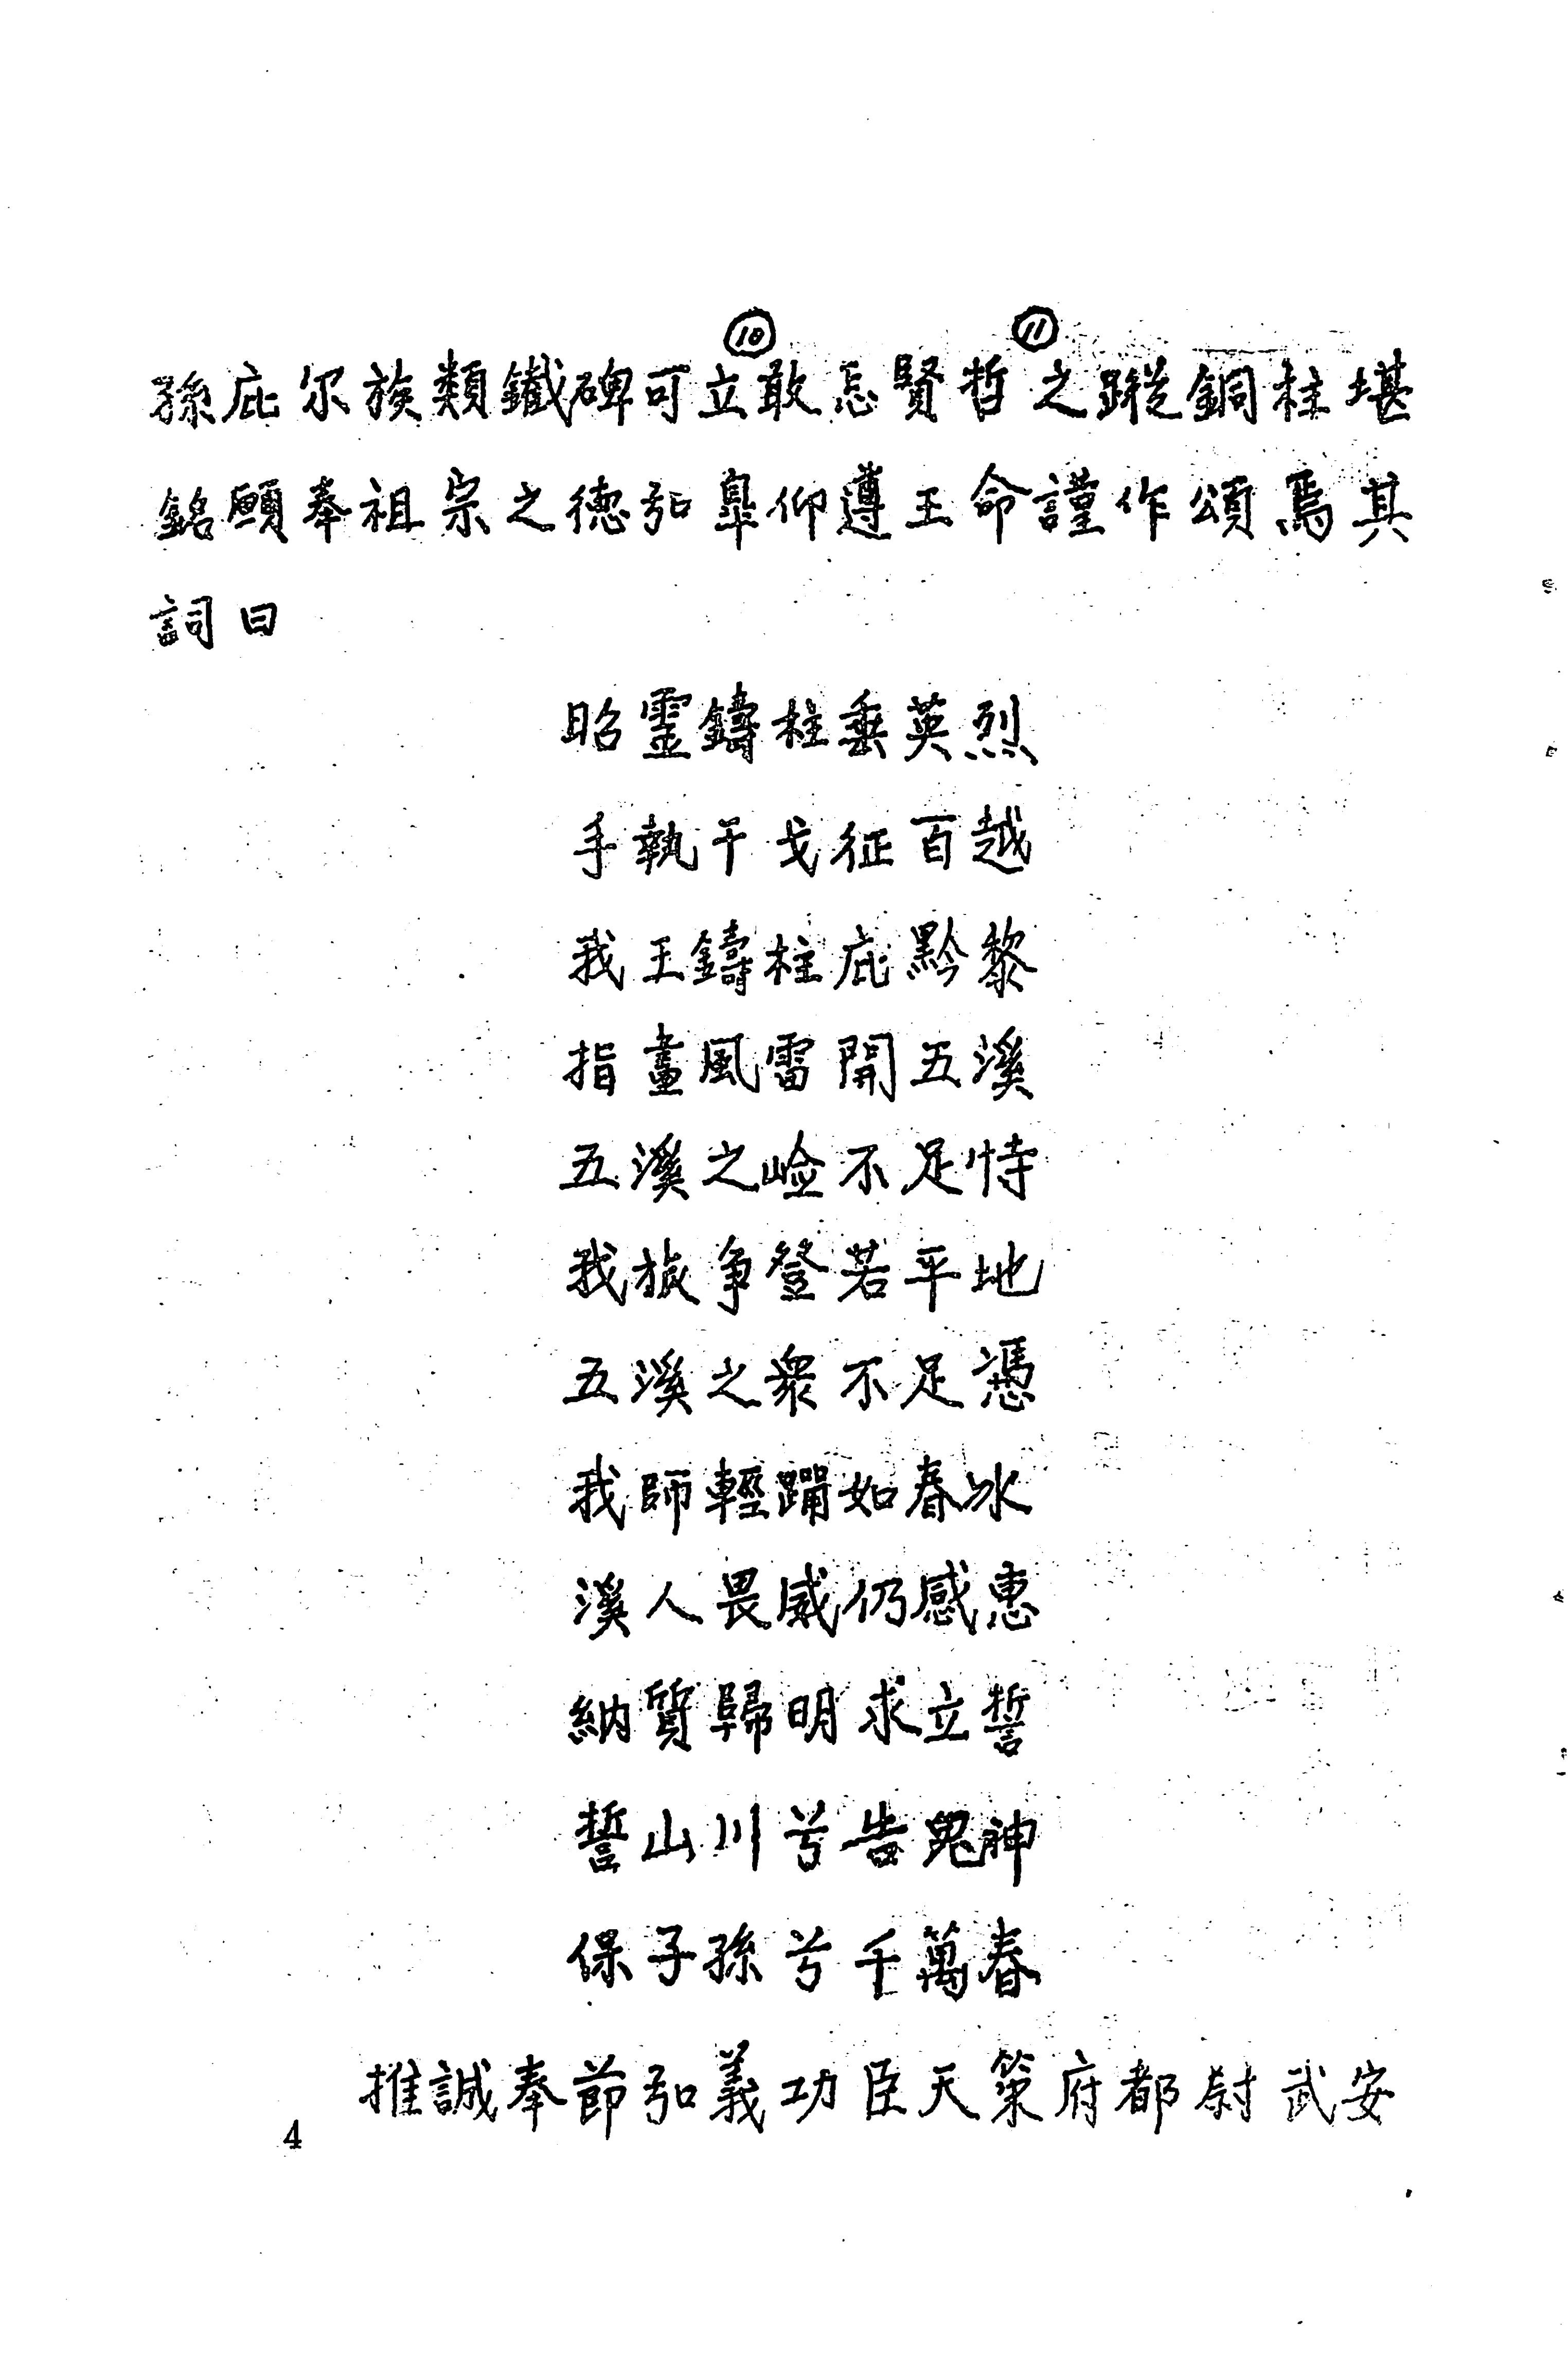 ⑩ ⑪
孫庇尔族類鐵碑可立敢忘賢哲之蹤銅柱堪
銘願奉祖宗之德弘皐仰遵王命謹作頌焉其
詞曰
昭靈鑄柱垂英烈
手執干戈征百越
我王鑄柱庇黔黎
指畫風雷開五溪
五溪之崄不足恃
我旅争登若平地
五溪之衆不足憑
我師輕躡如春冰
溪人畏威仍感惠
納質歸明求立誓
誓山川兮告鬼神
保子孫兮千萬春
推誠奉節弘義功臣天策府都尉武安
4